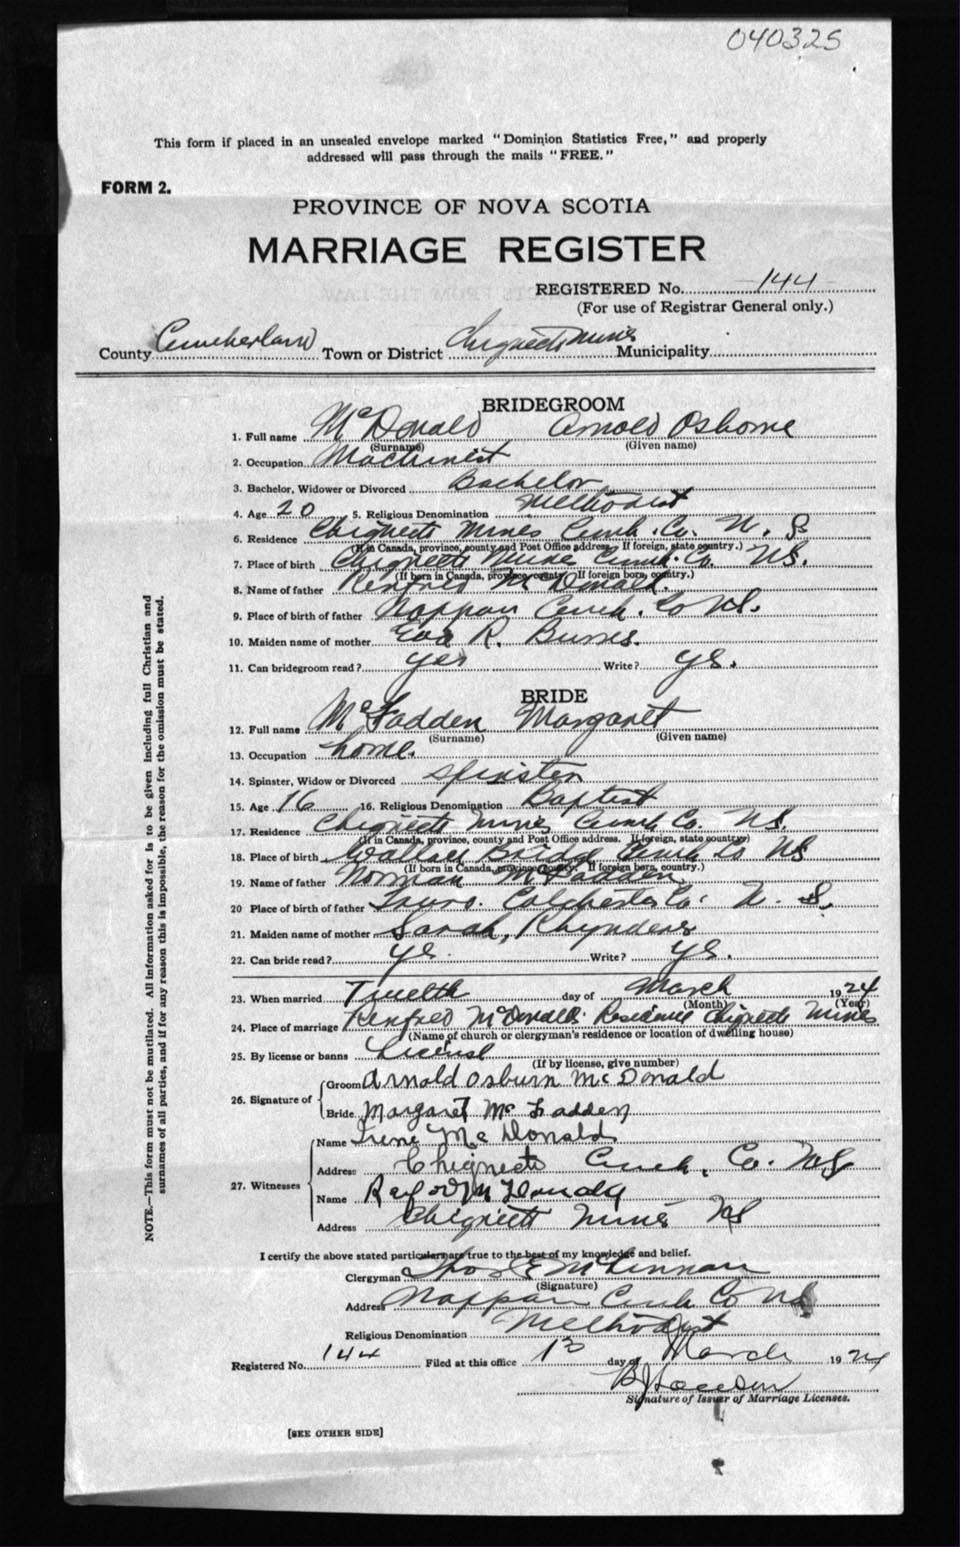 040325
This form if placed in an unsealed envelope marked "Dominion Statistics Free," and properly
addressed will pass through the mails "FREE."
FORM 2.
PROVINCE OF NOVA SCOTIA
MARRIAGE REGISTER
REGISTERED No. 144
(For use of Registrar General only.)
County Cumberland Town or District Chignecto Mines Municipality
BRIDEGROOM
1. Full name McDonald Arnold Osborne
(Surname) (Given name)
2. Occupation Machinist
3. Bachelor, Widower or Divorced Bachelor
4. Age 20 5. Religious Denomination Methodist
6. Residence Chignecto Mines Cumb. Co. N. S.
(If in Canada, province, county and Post Office address. If foreign, state country.)
7. Place of birth Chignecto Mine Cumb. Co. NS.
(If born in Canada, province, county. If foreign born, country.)
8. Name of father Renfred McDonald.
9. Place of birth of father Nappan Cumb. Co NS.
10. Maiden name of mother Eva R. Burns.
11. Can bridegroom read? yes Write? ys.
BRIDE
12. Full name McFadden Margaret
(Surname) (Given name)
13. Occupation home.
14. Spinster, Widow or Divorced Spinster
15. Age 16 16. Religious Denomination Baptist
17. Residence Chignecto Mines Cumb Co. NS
(If in Canada, province, county and Post Office address. If foreign, state country)
18. Place of birth Wallace Bridge Cumb Co NS
(If born in Canada, province, county. If foreign born, country.)
19. Name of father Norman McFadden
20 Place of birth of father Truro. Colchester Co. N. S.
21. Maiden name of mother Sarah, Rhynders
22. Can bride read? ys. Write? ys.
23. When married Twelth day of March 1924
(Month) (Year)
24. Place of marriage Renfred McDonald. Residence Chignecto Mines
(Name of church or clergyman's residence or location of dwelling house)
25. By license or banns License
(If by license, give number)
26. Signature of Groom Arnold Osburn McDonald
Bride Margaret McFadden
27. Witnesses Name Irene McDonald
Address Chignecto Cumb. Co. NS
Name McDonald
Address Chignecto Mines NS
I certify the above stated particulars are true to the best of my knowledge and belief.
Clergyman Thos E McLennan
(Signature)
Address Nappan Cumb Co NS
Religious Denomination Methodist
Registered No. 144 Filed at this office 13 day of March 1924
Signature of Issuer of Marriage Licenses.
[SEE OTHER SIDE]
NOTE.—This form must not be mutilated. All information asked for is to be given including full Christian and
surnames of all parties, and if for any reason this is impossible, the reason for the omission must be stated.